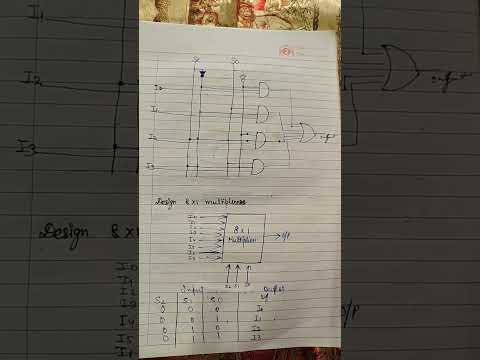 I1
I2
I3
output
Design 8
I0
I1
I2
I3
I4
I5
I1
O/P
S1
S0
I0
I1
I2
I3
output
Design 8x1 multiplexer
I0
I1
I2
I3
I4
I5
8 x 1
Multiplexer
O/P
S2 S1 S0
Input
Output
S2 S1 S0 Y
0 0 0 I0
0 0 1 I1
0 1 0 I2
0 1 1 I3